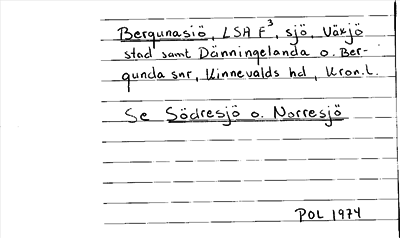 Bergunasiö, LSA F³, sjö, Växjö
stad samt Dänningelanda o. Ber-
gunda snr, Kinnevalds hd, Kron.l.
Se Södresjö o. Norresjö
POL 1974